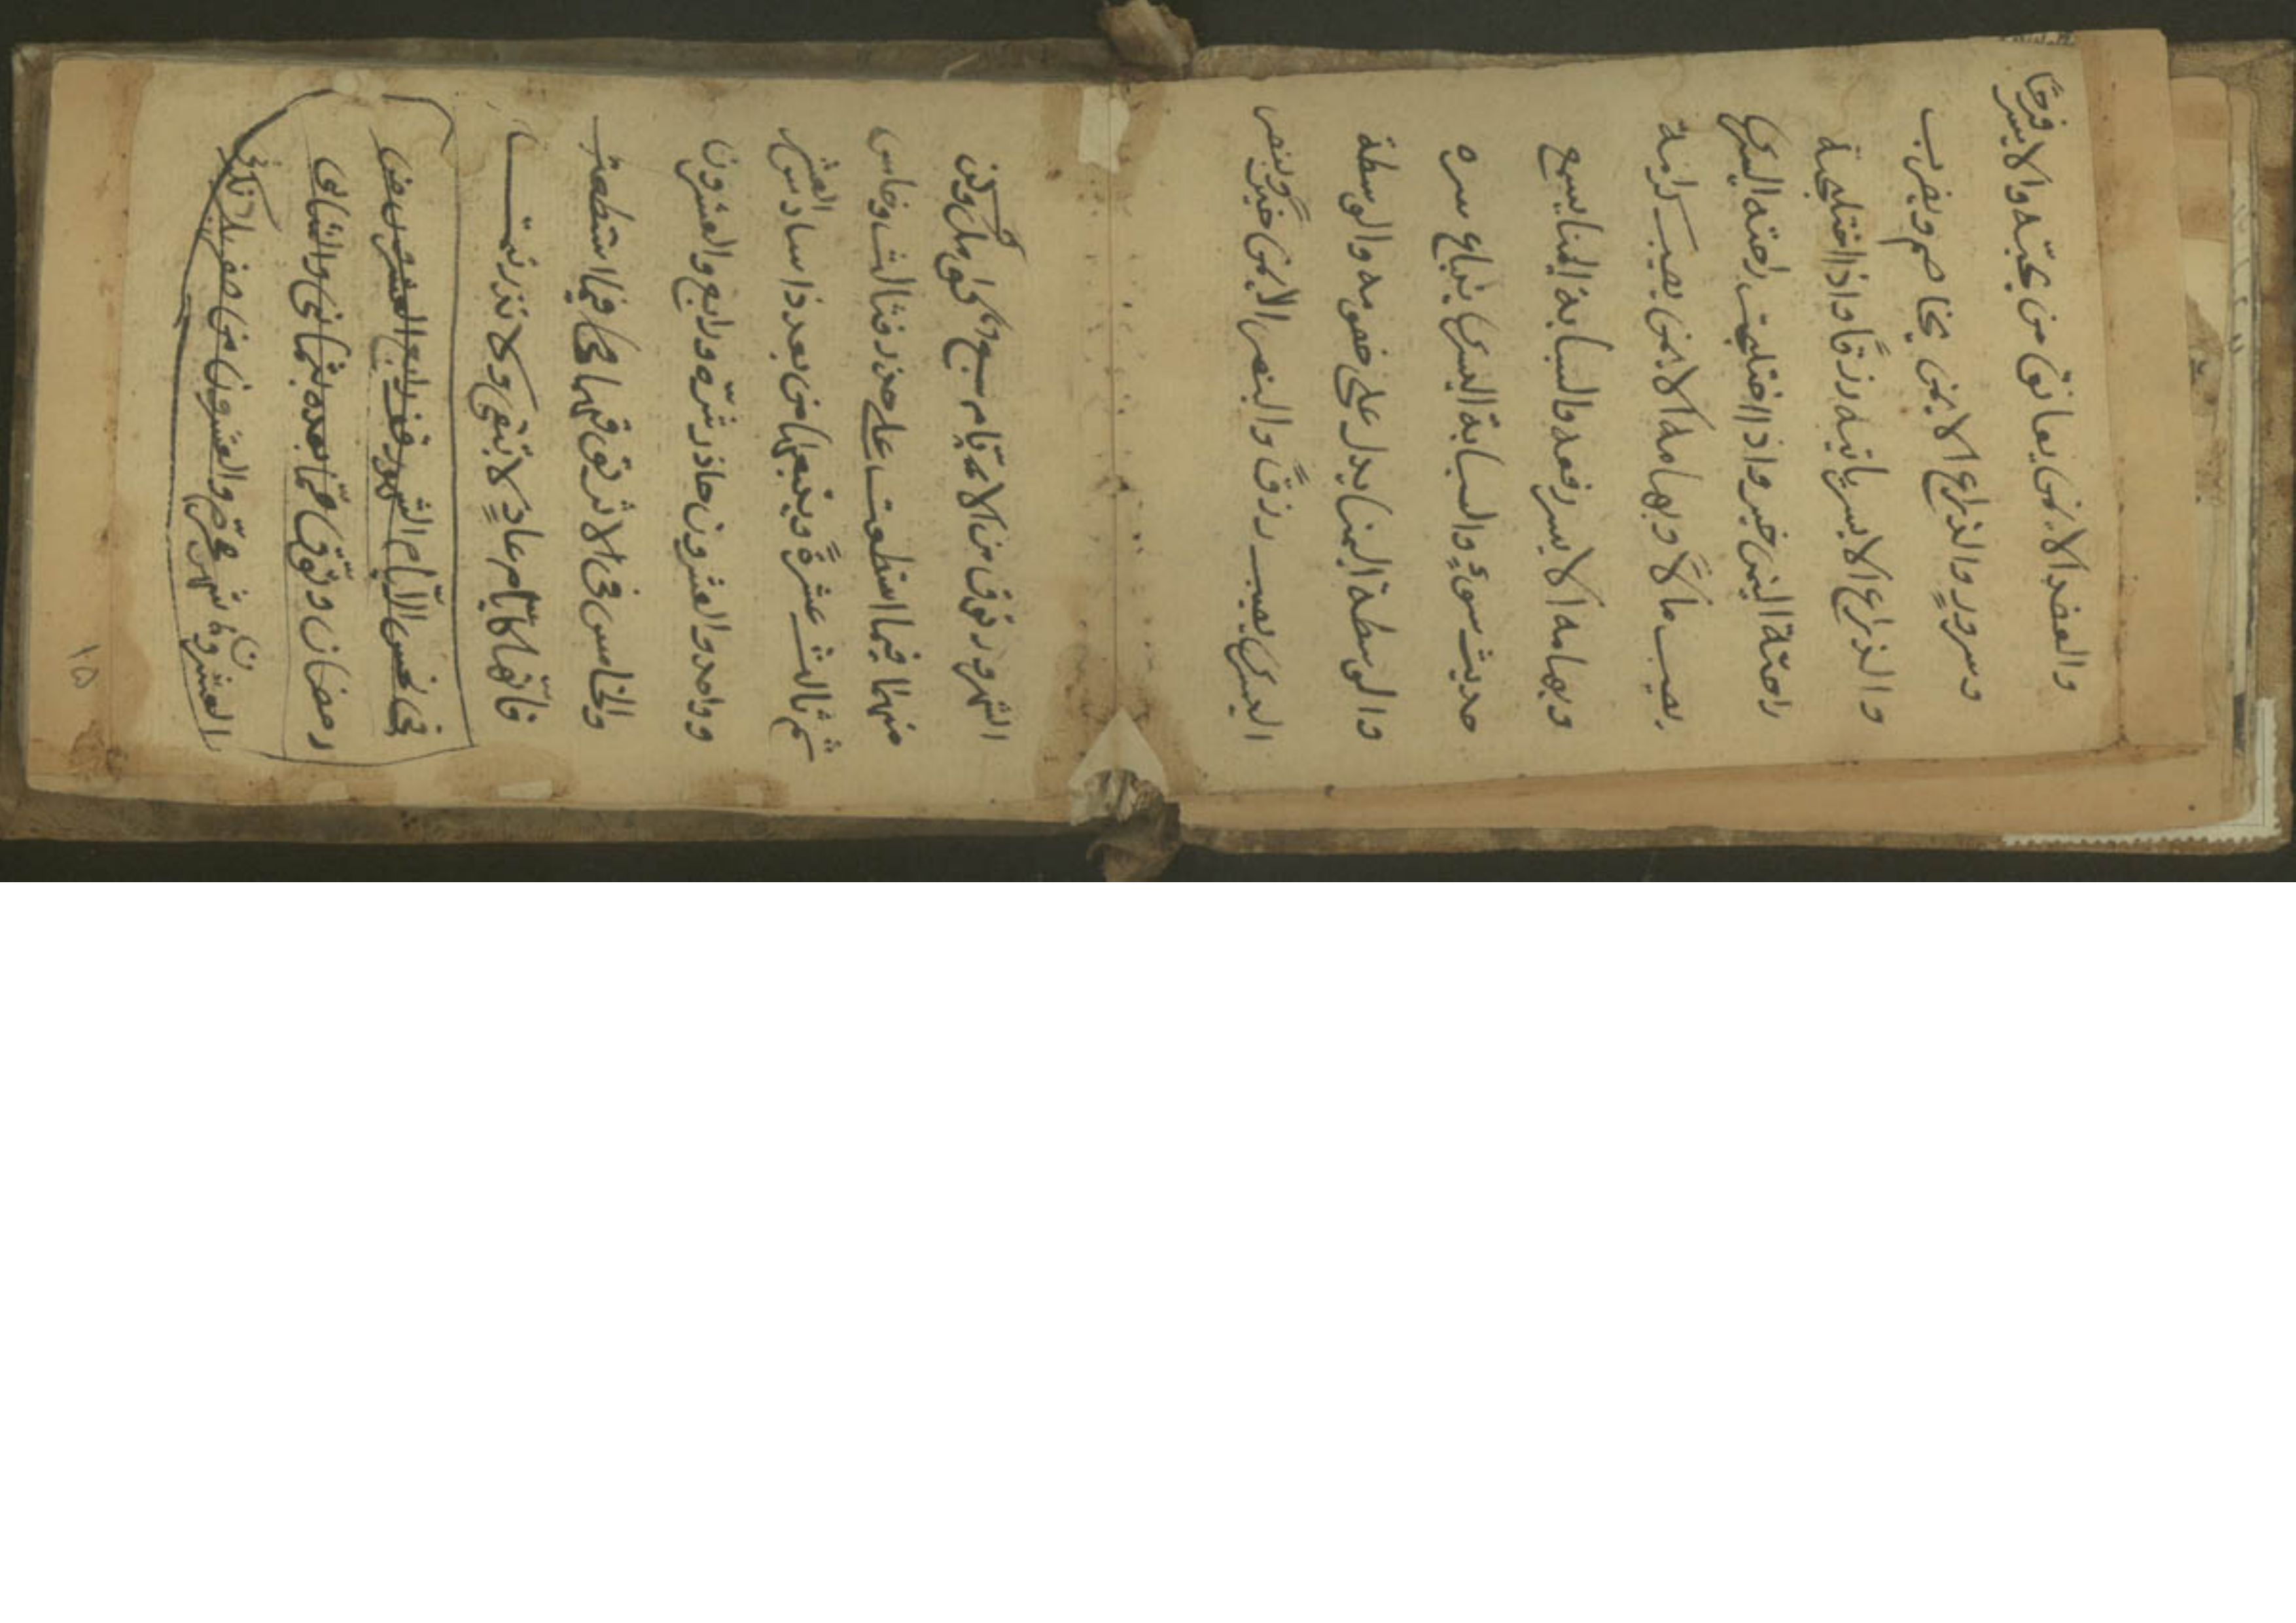 والعضد الايمن يعانق من يحبّه والايسر فرحًا
وسرورٍ والذراع الايمن يخاصم ويضرب
والذراع الايسر ياتيه رزقًا واذا اختلجة
راحتة اليمن خير واذا اختلجت راحته اليسرى
يصيب مالًا وبهامه الايمن يصيب كرامة
وبهامه الايسر رفعه والسبابة اليمنا يسمع
حديث سوءٍ والسبابة اليسرى يذاع سره
والوسطة اليمنا يدل على خصومه والوسطة
اليسرى يصيب رزقًا والبنصر الايمن خيرٌ وبنصر
الشهر وتوق من الايّام سبعٌ كوامل وكن
منها فيما استطعت على حذر فثالث وخامس
ثم ثالث عشرةً ويتبعها من بعد ذا سادس العشر
وواحد والعشرون حاذر شرّه ورابع والعشرون
والخامس في الاثر توقها مهما استطعت
فانها كايّام عادٍ لا تبقى ولا تذر تمت
في نحس الايّام الشهور فرابع العشر من
رمضان وتوقّى ممّا بعده ثماني والثاني
العشرون من شهر محرّم والعشرون من صفر
١٥